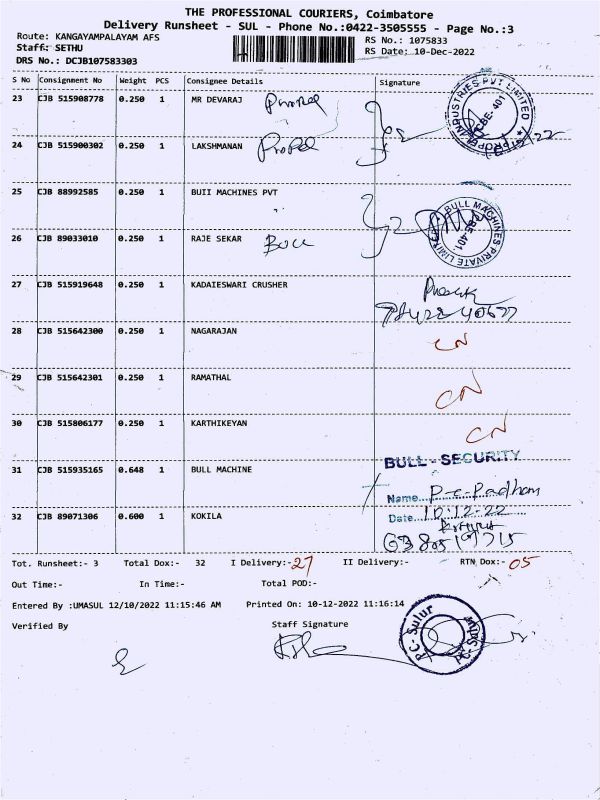 THE PROFESSIONAL COURIERS, Coimbatore
Delivery Runsheet - SUL - Phone No.:0422-3505555 - Page No.:3
Route: KANGAYAMPALAYAM AFS
RS No.: 1075833
Staff: SETHU
RS Date: 10-Dec-2022
DRS No.: DCJB107583303
S No Consignment No Weight PCS Consignee Details Signature
23 CJB 515908778 0.250 1 MR DEVARAJ
24 CJB 515900302 0.250 1 LAKSHMANAN Propel
25 CJB 88992585 0.250 1 BUII MACHINES PVT
BULL MACHINES PRIVATE LIMITED
CBE-401.
26 CJB 89033010 0.250 1 RAJE SEKAR Bull
27 CJB 515919648 0.250 1 KADAIESWARI CRUSHER
28 CJB 515642300 0.250 1 NAGARAJAN CN
29 CJB 515642301 0.250 1 RAMATHAL CN
30 CJB 515806177 0.250 1 KARTHIKEYAN CN
BULL - SECURITY
31 CJB 515935165 0.648 1 BULL MACHINE
Name P-c-Padham
32 CJB 89071306 0.600 1 KOKILA
Date 10.12-22
Tot. Runsheet:- 3 Total Dox:- 32 I Delivery:- 27 II Delivery:- RTN Dox:- 05
Out Time:- In Time:- Total POD:-
Entered By :UMASUL 12/10/2022 11:15:46 AM Printed On: 10-12-2022 11:16:14
Verified By Staff Signature
PC-Sulur